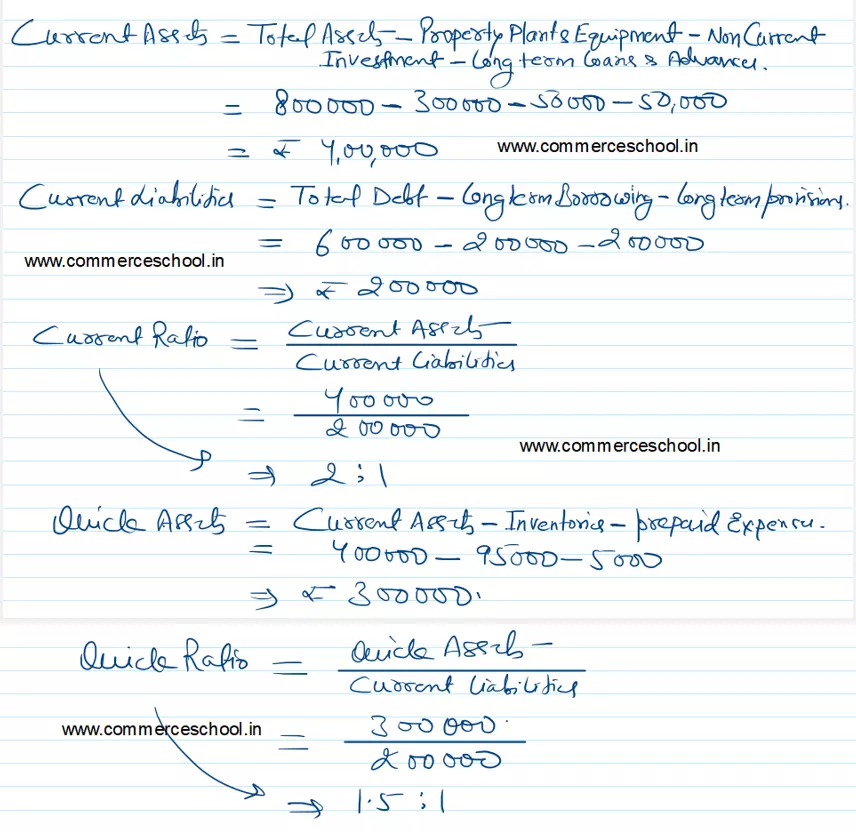 Current Assets = Total Assets - Property Plant & Equipment - Non Current
Investment - Long term Loans & Advances.
= 800000 - 300000 - 50000 - 50,000
= ₹ 4,00,000 www.commerceschool.in
Current Liabilities = Total Debt - Long term Borrowing - Long term provisions.
= 600000 - 200000 - 200000
www.commerceschool.in
⇒ ₹ 200000
Current Ratio = Current Assets
Current Liabilities
= 400000
200000
www.commerceschool.in
⇒ 2:1
Quick Assets = Current Assets - Inventories - prepaid Expenses.
= 400000 - 95000 - 5000
⇒ ₹ 300000.
Quick Ratio = Quick Assets
Current Liabilities
www.commerceschool.in = 300000
200000
⇒ 1.5:1